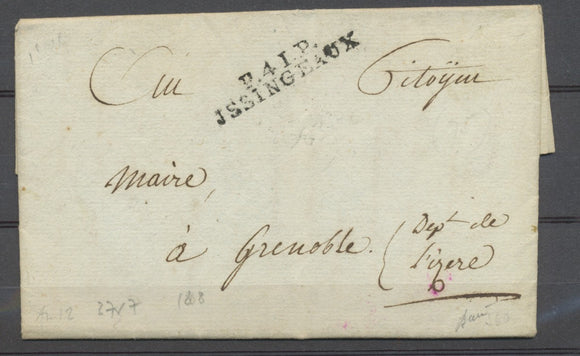 P.41.P.
JSSINGEAUX
Au Citoÿen
Maire,
à Grenoble. (Dept de
l'izere
An 12 37V7 1803